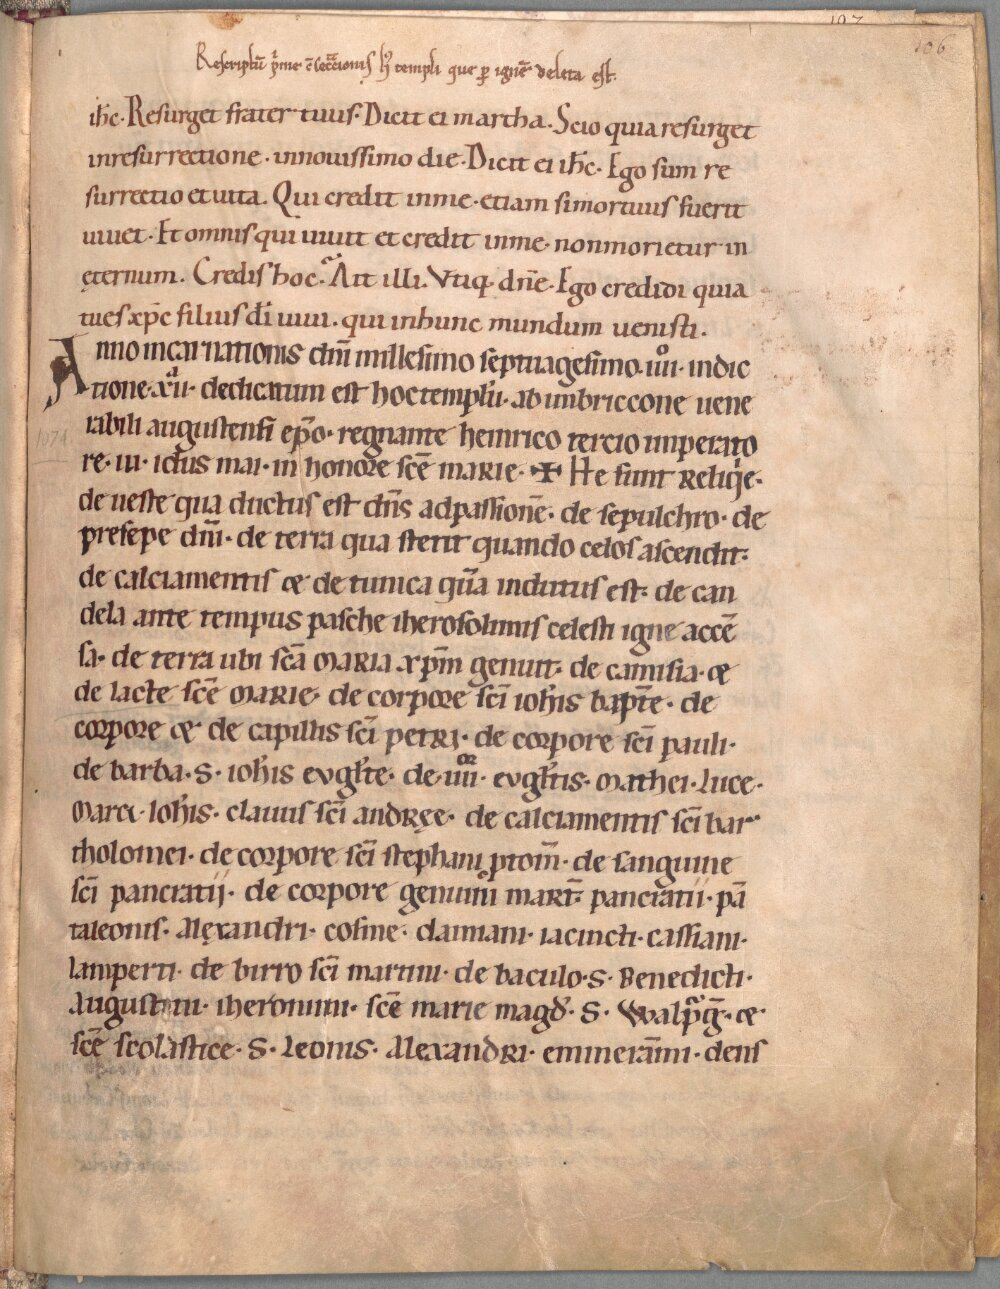 106
Rescriptū p̾me c̄secc̄ionis hꝰ templi que ꝑ ignē deleta est.
ih̄c. Resurget frater tuus. Dicit ei martha. Scio quia resurget
inresurrectione. innouissimo die. Dicit ei ih̄c. Ego sum re
surrectio etuita. Qui credit inme. etiam simortuus fuerit
uiuet. Et omnis qui uiuit et credit inme. nonmorietur in
ęternum. Credis hoc? Ait illi. Vtiq; dn̄e. Ego credidi quia
tuesxp̄c filius dī uiui. qui inhunc mundum uenisti.
Anno incarnationis dn̄i millesimo septuagesimo. iiiiᵒ. indic
tione. xii. dedicatum est hoctemplū. ab imbriccone uene
rabili augustensi ep̄o. regnante heinrico tercio imperato
re. iii. idus mai. in honore scē marie. ✠ He sunt Reliqͥe.
1074
de ueste qua ductus est dn̄s adpassionē. de sepulchro. de
presepe dn̄i. de terra qua stetit quando celos ascendit.
de calciamentis & de tunica qūa indutus est. de can
dela ante tempus pasche iherosolimis celesti igne accē
sa. de terra ubi scā MARIA xp̄m genuit. de camisia. &
de lacte scē MARIE. de corpore scī ioh̄is bapt̄e. de
corpore & de capillis scī petRI. de corpore scī pauli.
de barba. S. ioh̄is evgl̄te. de. iiiiᵒʳ. evgl̄tis. Mathei. Luce.
Marci. Ioh̄is. clauus scī andRęe. de calciamentis scī bar
tholomei. de corpore scī stephani ptom̄. de sanguine
scī pancratii. de corpore genuini marṫ. panciatii. pā
taleonis. Alexandri. cosme. damiani. iacincti. cassiani.
lamperti. de birro scī martini. de baculo. S. Benedicti.
Augustini. iheronimi. scē marie magd̄. S. Walpͥg̅. &
scē scolastice. S. Leonis. AlexandRI. emmerāmi. dens